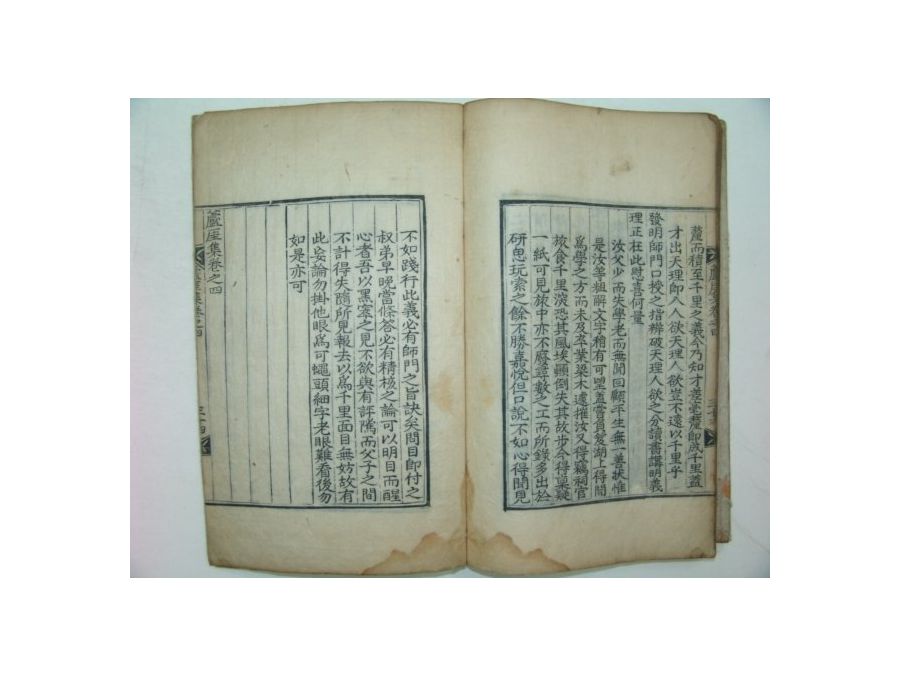 釐而積至千里之義今乃知才差毫釐卽成千里蓋
才出天理卽人人欲天理人欲豈不遠以千里乎
發明師門口授之旨辨破天理人欲之分讀書講明義
理正在此慰喜何量
汝父少而失學老而無聞回顧平生無一善狀惟
是汝等粗解文字稍有可望蓋嘗負笈湖上得聞
爲學之方而未及卒業樑木遽摧汝又得竊祠官
旅食千里深恐其風埃顚倒失其故步今得稟疑
一紙可見旅中亦不廢尋數之工而所錄多出於
研思玩索之餘不勝喜悅但口說不如心得聞見
不如踐行此義必有師門之旨訣矣問目卽付之
叔弟早晩當條答必有精核之論可以明目而醒
心者吾以黑窣之見不欲與有評隲而父子之間
不計得失隨所見報去以爲千里面目無妨故有
此妄論勿掛他眼爲可蠅頭細字老眼難看後勿
如是亦可
蘆厓集卷之四